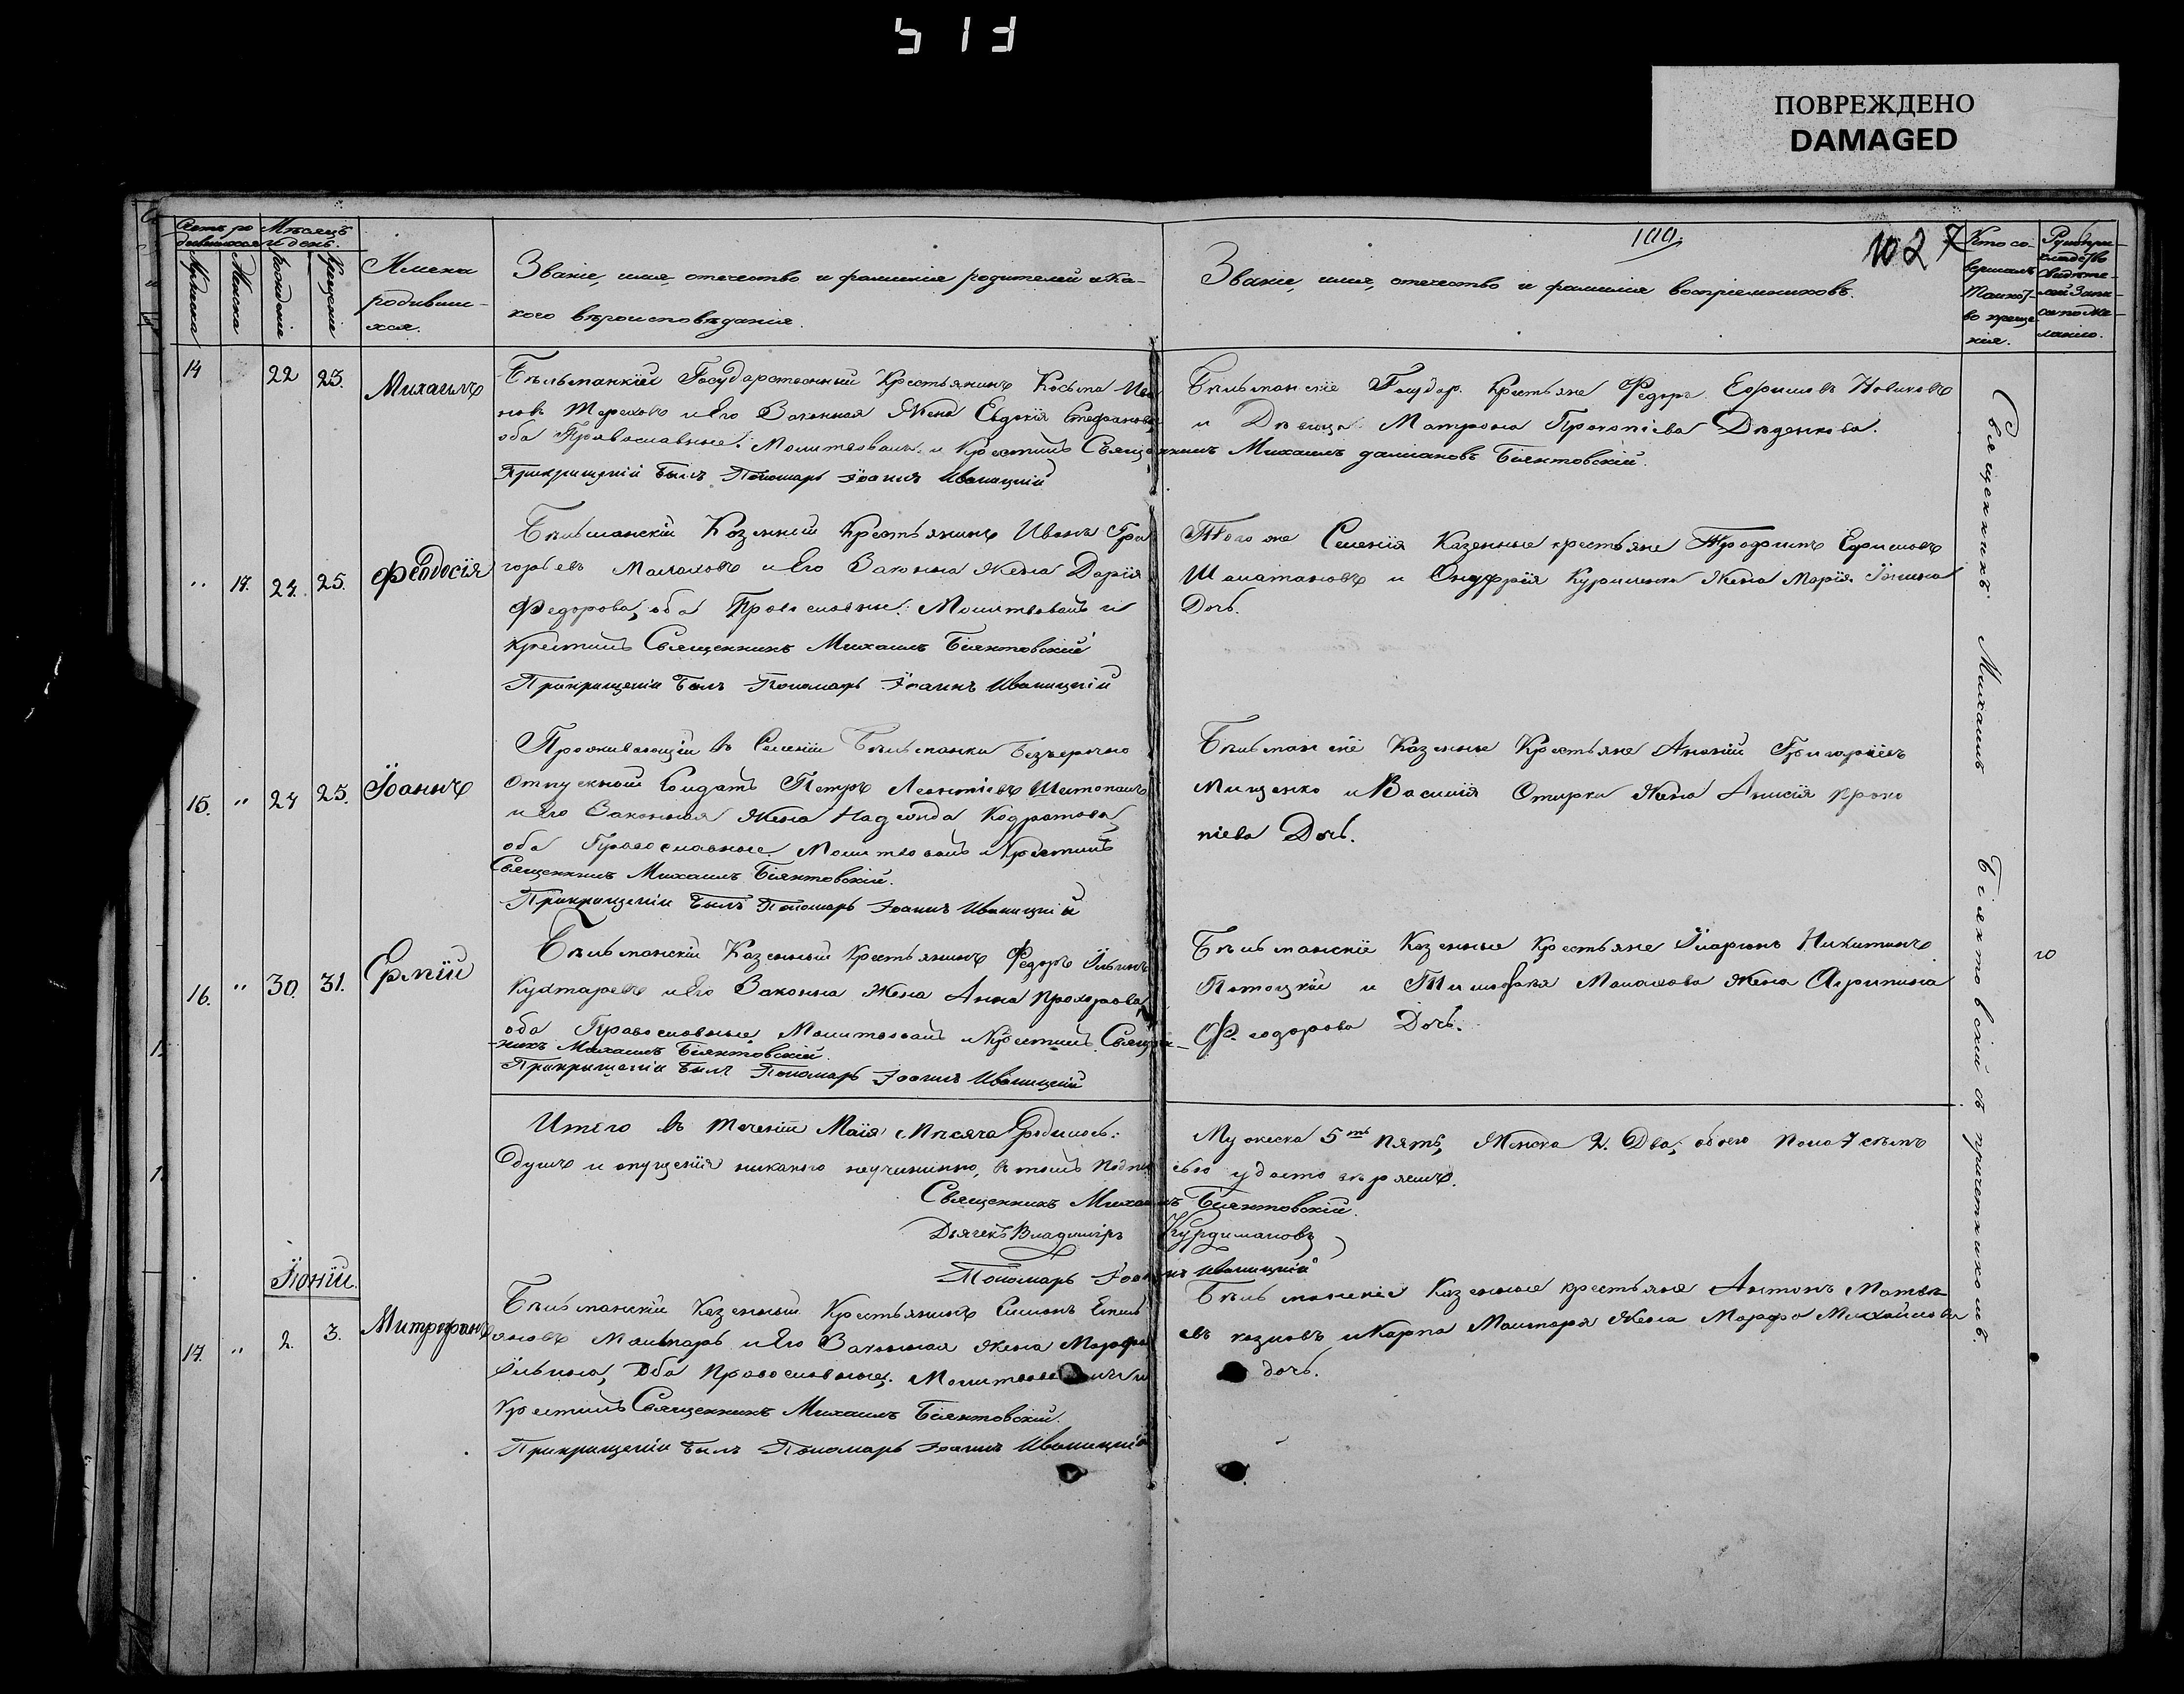 513
ПОВРЕЖДЕНО
DAMAGED
100.
1027
Счетъ ро
дившихся
Мѣсяцъ
и день.
Мужеска
Женска
рожденіе
Крещеніе
Имена
родивши-
хся.
Званіе, имя, отечество и фамилія родителей и ка-
кого вѣроисповѣданія.
Званіе, имя, отечество и фамилія воспріемниковъ.
Кто со-
вершалъ
таинст-
во креще
нія.
Рукопри-
кладство
свидѣте-
лей запи-
си по же-
ланію.
14 22 23. Михаилъ
Бѣльманкій Государственный Крестьянинъ Косьма Ива
новъ Тереховъ и его Законная Жена Евдокія Стефанова,
оба Православные. Молитвовалъ и Крестилъ Священникъ Михаилъ Біянтовскій.
Прикрищеніи былъ Пономарь Іоаннъ Иваницкій
Бѣльманскіе Государ. Крестьяне Федоръ Ефимовъ Новиковъ
и Дѣвица Матрона Прокопіева Дѣденкова.
" 17. 24. 25. Феодосія
Бѣльманскій Казенный Крестьянинъ Иванъ Гри
горьевъ Малаховъ и его Законна Жена Дарія
Федорова, оба Православны. Молитвовалъ и
Крестилъ Священникъ Михаилъ Біянтовскій
Прикрищеніи былъ Пономарь Іоаннъ Иваницкій
Того же Селенія Казенные крестьяне Трофимъ Ефимовъ
Шаматановъ и Онуфрія Куриленка Жена Марія Ільина
Дочь.
15. " 24 25. Іоаннъ
Проживающій въ Селеніи Бѣльманки Безсрочно
отпускный Солдатъ Петръ Леонтіевъ
и его Законная Жена Надежда Кодратова,
оба Православные Молитвовалъ и Крестилъ
Священникъ Михаилъ Біянтовскій.
Прикрищеніи былъ Пономарь Іоаннъ Иваницкій
Бѣльманскіе Казенные Крестьяне Ананій Григоріевъ
Мищенко и Василія Отирка Жена Анисія Проко
піева Дочь.
16. " 30. 31. Ермій
Бѣльманскій Казенный Крестьянинъ Федоръ Ільинъ
Кухтаревъ и его Законна Жена Анна Прохорова,
оба Православные, Молитвовалъ и Крестилъ Священ-
никъ Михаилъ Біянтовскій.
Прикрищеніи былъ Пономарь Іоаннъ Иваницкій
Бѣльманскіе Казенные Крестьяне Іларіонъ Никитинъ
Потоцкій и Тимофѣя Малахова Жена Агрипина
Феодорова Дочь.
Итого въ теченіи Маія Мѣсяча Родилось: Мужеска 5ть пять, Женска 2. Два, обоего пола 7 семь
душъ и опущенія никакого неучинино, въ томъ подписью удостовѣряемъ.
Священникъ Михаилъ Біянтовскій.
Дьячекъ Владиміръ Курдимановъ
Пономарь Іоаннъ Иваницкій
Іюній.
17. " 2. 3. Митрофанъ
Бѣльманскій Казенный Крестьянинъ Симонъ Емель
яновъ Мальтарь и его Законная Жена Марфа
Сільина, Оба Православные. Молитвовалъ и
Крестилъ Священникъ Михаилъ Біянтовскій.
Прикрищеніи былъ Пономарь Іоаннъ Иваницкій
Бѣльманскіе Казенные крестьяне Антонъ Матвѣ-
евъ козловъ и Карпа Малтаря Жена Марфа Михайлова
дочь.
Священникъ Михаилъ Біянтовскій съ причетникомъ.